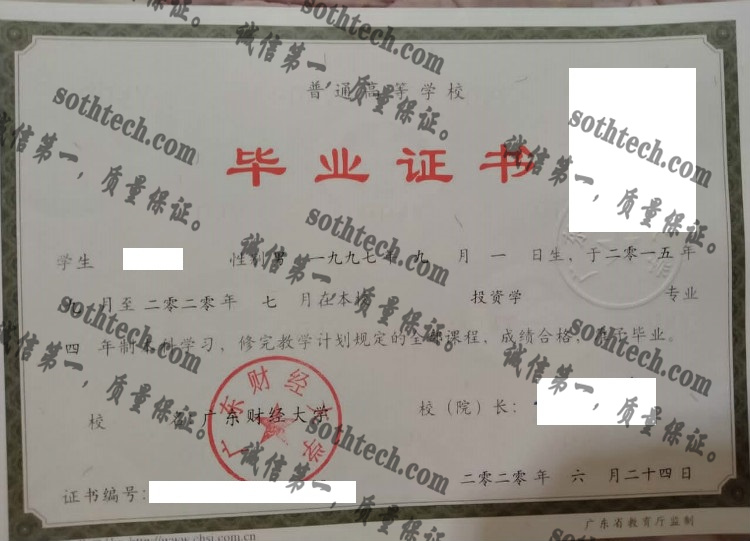 普通高等学校
毕业证书
学生 性别男 一九九七年 九 月 一 日生，于二〇一五年
九 月至二〇二〇年 七 月在本校 投资学 专业
四 年制本科学习，修完教学计划规定的全部课程，成绩合格，准予毕业。
校 名：广东财经大学 校（院）长：
广东财经大学
二〇二〇年 六 月二十四日
证书编号：
http://www.chsi.com.cn
广东省教育厅监制
sothtech.com
诚信第一，质量保证。
sothtech.com
诚信第一，质量保证。
sothtech.com
诚信第一，质量保证。
sothtech.com
诚信第一，质量保证。
sothtech.com
诚信第一，质量保证。
sothtech.com
诚信第一，质量保证。
sothtech.com
诚信第一，质量保证。
sothtech.com